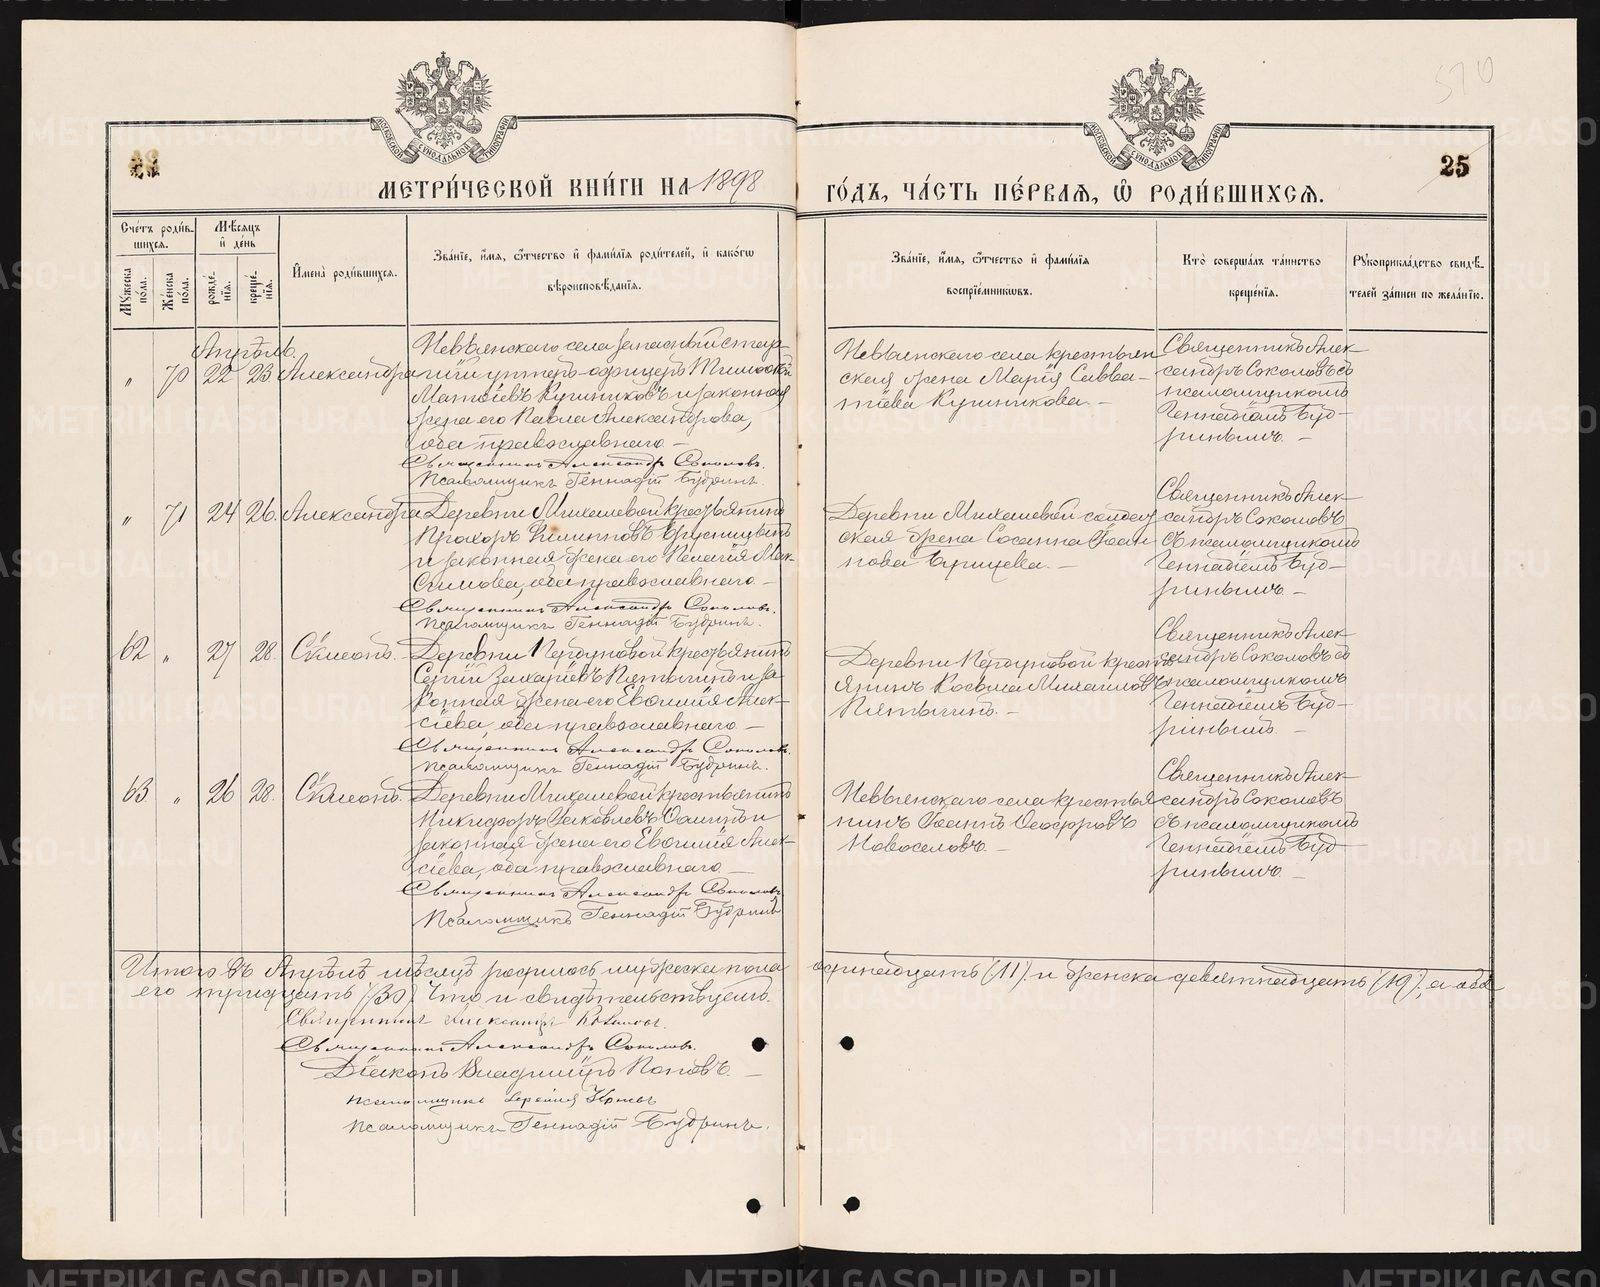 570
25
МОСКОВСКОЙ СѴНОДАЛЬНОЙ ТИПОГРАФІИ
МОСКОВСКОЙ СѴНОДАЛЬНОЙ ТИПОГРАФІИ
МЕТРИ́ЧЕСКОЙ КНИ́ГИ НА 1898 ГО́ДЪ, ЧА́СТЬ ПЕ́РВАЯ, Ѡ РОДИ́ВШИХСЯ.
Сче́тъ роди́в-
шихся.
Мꙋ́жеска по́ла.
Же́нска по́ла.
Мѣ́сяцъ
и҆ де́нь
рожде́-
нїя.
креще́-
нїя.
И҆мена̀ роди́вшихся.
Зва́нїе, и҆́мя, ѻ҆́тчество и҆ фами́лїя роди́телей, и҆ како́гѡ
вѣроисповѣ́данїя.
Зва́нїе, и҆́мя, ѻ҆́тчество и҆ фами́лїя
воспрїе́мникѡвъ.
Кто̀ соверша́лъ та́инство
креще́нїя.
Рꙋкоприкла́дство свидѣ́-
телей за́писи по жела́нїю.
Апрѣль.
" 70 22 23 Александра
Невьянскаго села запасный стар-
шій унтеръ-офицеръ Тимофей
Матѳіевъ Кушниковъ и законная
жена его Павла Александрова,
оба православнаго. –
Священникъ Александръ Соколовъ.
Псаломщикъ Геннадій Будринъ.
Невьянскаго села крестьян
ская жена Марія Савва-
тіева Кушникова. –
Священникъ Алек-
сандръ Соколовъ съ
псаломщикомъ
Геннадіемъ Буд-
ринымъ. –
" 71 24 26. Александра
Деревни Михалевой крестьянинъ
Прохоръ
и законная жена его Пелагія Мак-
симова, оба православнаго. –
Священникъ Александръ Соколовъ.
Псаломщикъ Геннадій Будринъ.
Деревни Михалевой солдат
ская жена Сосанна Іоан
нова
Священникъ Алек-
сандръ Соколовъ
съ псаломщикомъ
Геннадіемъ Буд-
ринымъ. –
62 " 27 28. Сѵмеонъ.
Деревни крестьянинъ
Сергій Захаріевъ Пятыгинъ и за
конная жена его Евѳимія Алек-
сіева, оба православнаго. –
Священникъ Александръ Соколовъ.
Псаломщикъ Геннадій Будринъ.
Деревни крестъ
янинъ Косьма Михаиловъ
Пятыгинъ. –
Священникъ Алек-
сандръ Соколовъ съ
псаломщикомъ
Геннадіемъ Буд-
ринымъ. –
63 " 26 28. Сѵмеонъ.
Деревни Михалевой крестьянинъ
Никифоръ Іаковлевъ и
законная жена его Евѳимія Алек-
сіева, оба православнаго. –
Священникъ Александръ Соколовъ
Псаломщикъ Геннадій Будринъ
Невьянскаго села крестья
нинъ Іоаннъ Ѳеодоровъ
Новоселовъ. –
Священникъ Алек-
сандръ Соколовъ
съ псаломщикомъ
Геннадіемъ Буд
ринымъ –
Итого въ Апрѣлѣ мѣсяцѣ родилось мужеска пола одинадцать (11) и женска девятнадцать (19), а обо
его тридцать (30). Что и свидѣтельствуемъ.
Священникъ Александръ
Священникъ Александръ Соколовъ.
Діаконъ Владиміръ Поповъ. –
Псаломщикъ
Псаломщикъ Геннадій Будринъ.
METRIKI.GASO-URAL.RU